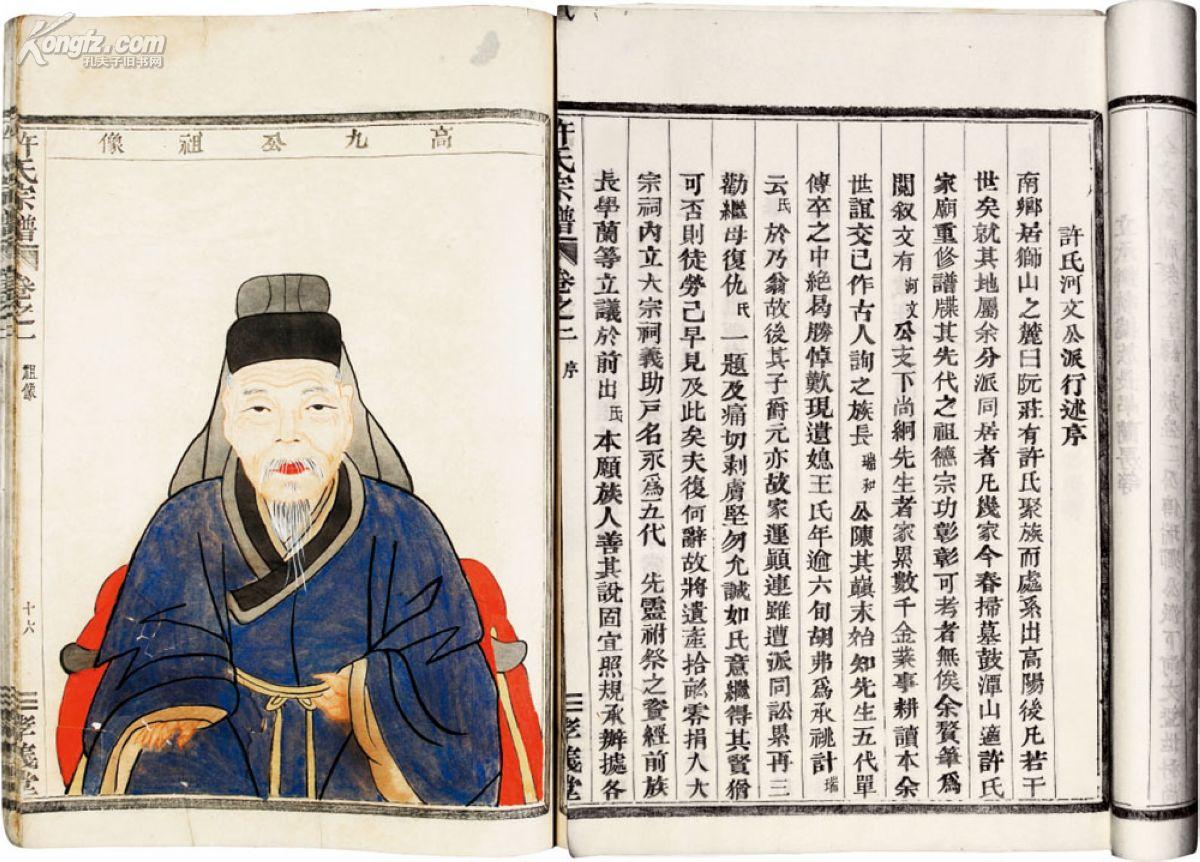 Kongfz.com
孔夫子旧书网
高九公祖像
許氏宗譜
卷之二
祖像
十六
孝義堂
許氏宗譜
卷之二
序
孝義堂
許氏河文公派行述序
南鄉居獅山之麓曰阮莊有許氏聚族而處系出高陽後凡若干
世矣就其地屬余分派同居者凡幾家今春掃墓鼓潭山適許氏
家廟重修譜牒其先代之祖德宗功彰彰可考者無俟余贅筆爲
閱叙文有河文公支下尚絅先生者家累數千金業事耕讀本余
世誼交已作古人詢之族長瑞和公陳其顛末始知先生五代單
傳卒之中絕曷勝悼歎現遺媳王氏年逾六旬胡弗爲承祧計瑞
云氏於乃翁故後其子爵元亦故家運顛連雖遭派同訟累再三
勸繼母復仇氏一題及痛切剥膚堅勿允誠如氏意繼得其賢猶
可否則徒勞己早見及此矣夫復何辭故將遺產拾畝零捐入大
宗祠內立大宗祠義助戶名永爲五代先靈祔祭之資經前族
長學蘭等立議於前出氏本願族人善其說固宜照規承辦據各